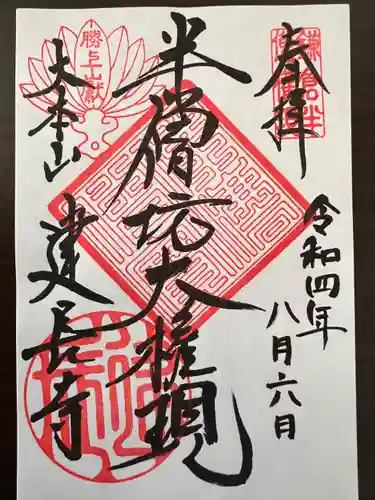 奉拝
令和四年
八月六日
半僧坊大権現
勝上山獄
大本山
建長寺